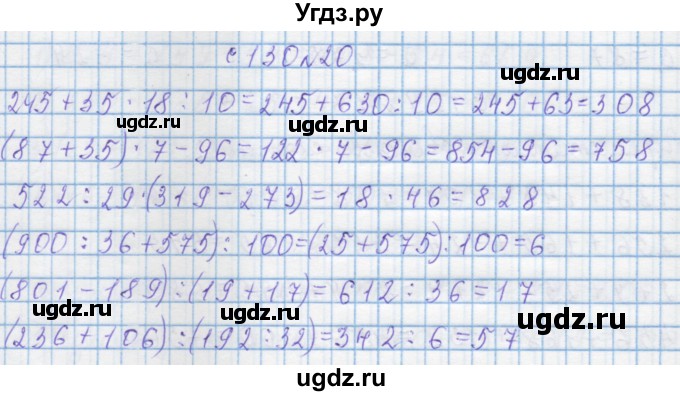 Угдз.ру
с 130 №20
угдз.ру
245 + 35 · 18 : 10 = 245 + 630 : 10 = 245 + 63 = 308
ugdz.ru
ugdz.ru
(87 + 35) · 7 - 96 = 122 · 7 - 96 = 854 - 96 = 758
522 : 29 · (319 - 273) = 18 · 46 = 828
ugdz.ru
ugdz.ru
(900 : 36 + 575) : 100 = (25 + 575) : 100 = 6
(801 - 189) : (19 + 17) = 612 : 36 = 17
ugdz.ru
ugdz.ru
(236 + 106) : (192 : 32) = 342 : 6 = 57
ugdz.ru